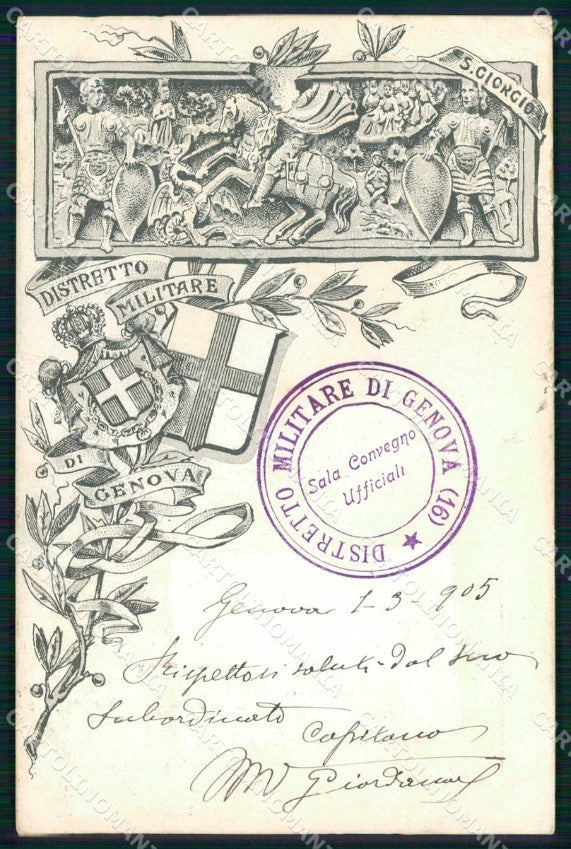 S. GIORGIO
DISTRETTO
MILITARE
DI
GENOVA
DISTRETTO MILITARE DI GENOVA (16) ★
Sala Convegno
Ufficiali
Genova 1-3 905
Rispettosi saluti dal suo
subordinato
Capitano
Giordano
CARTOLINOMANIA